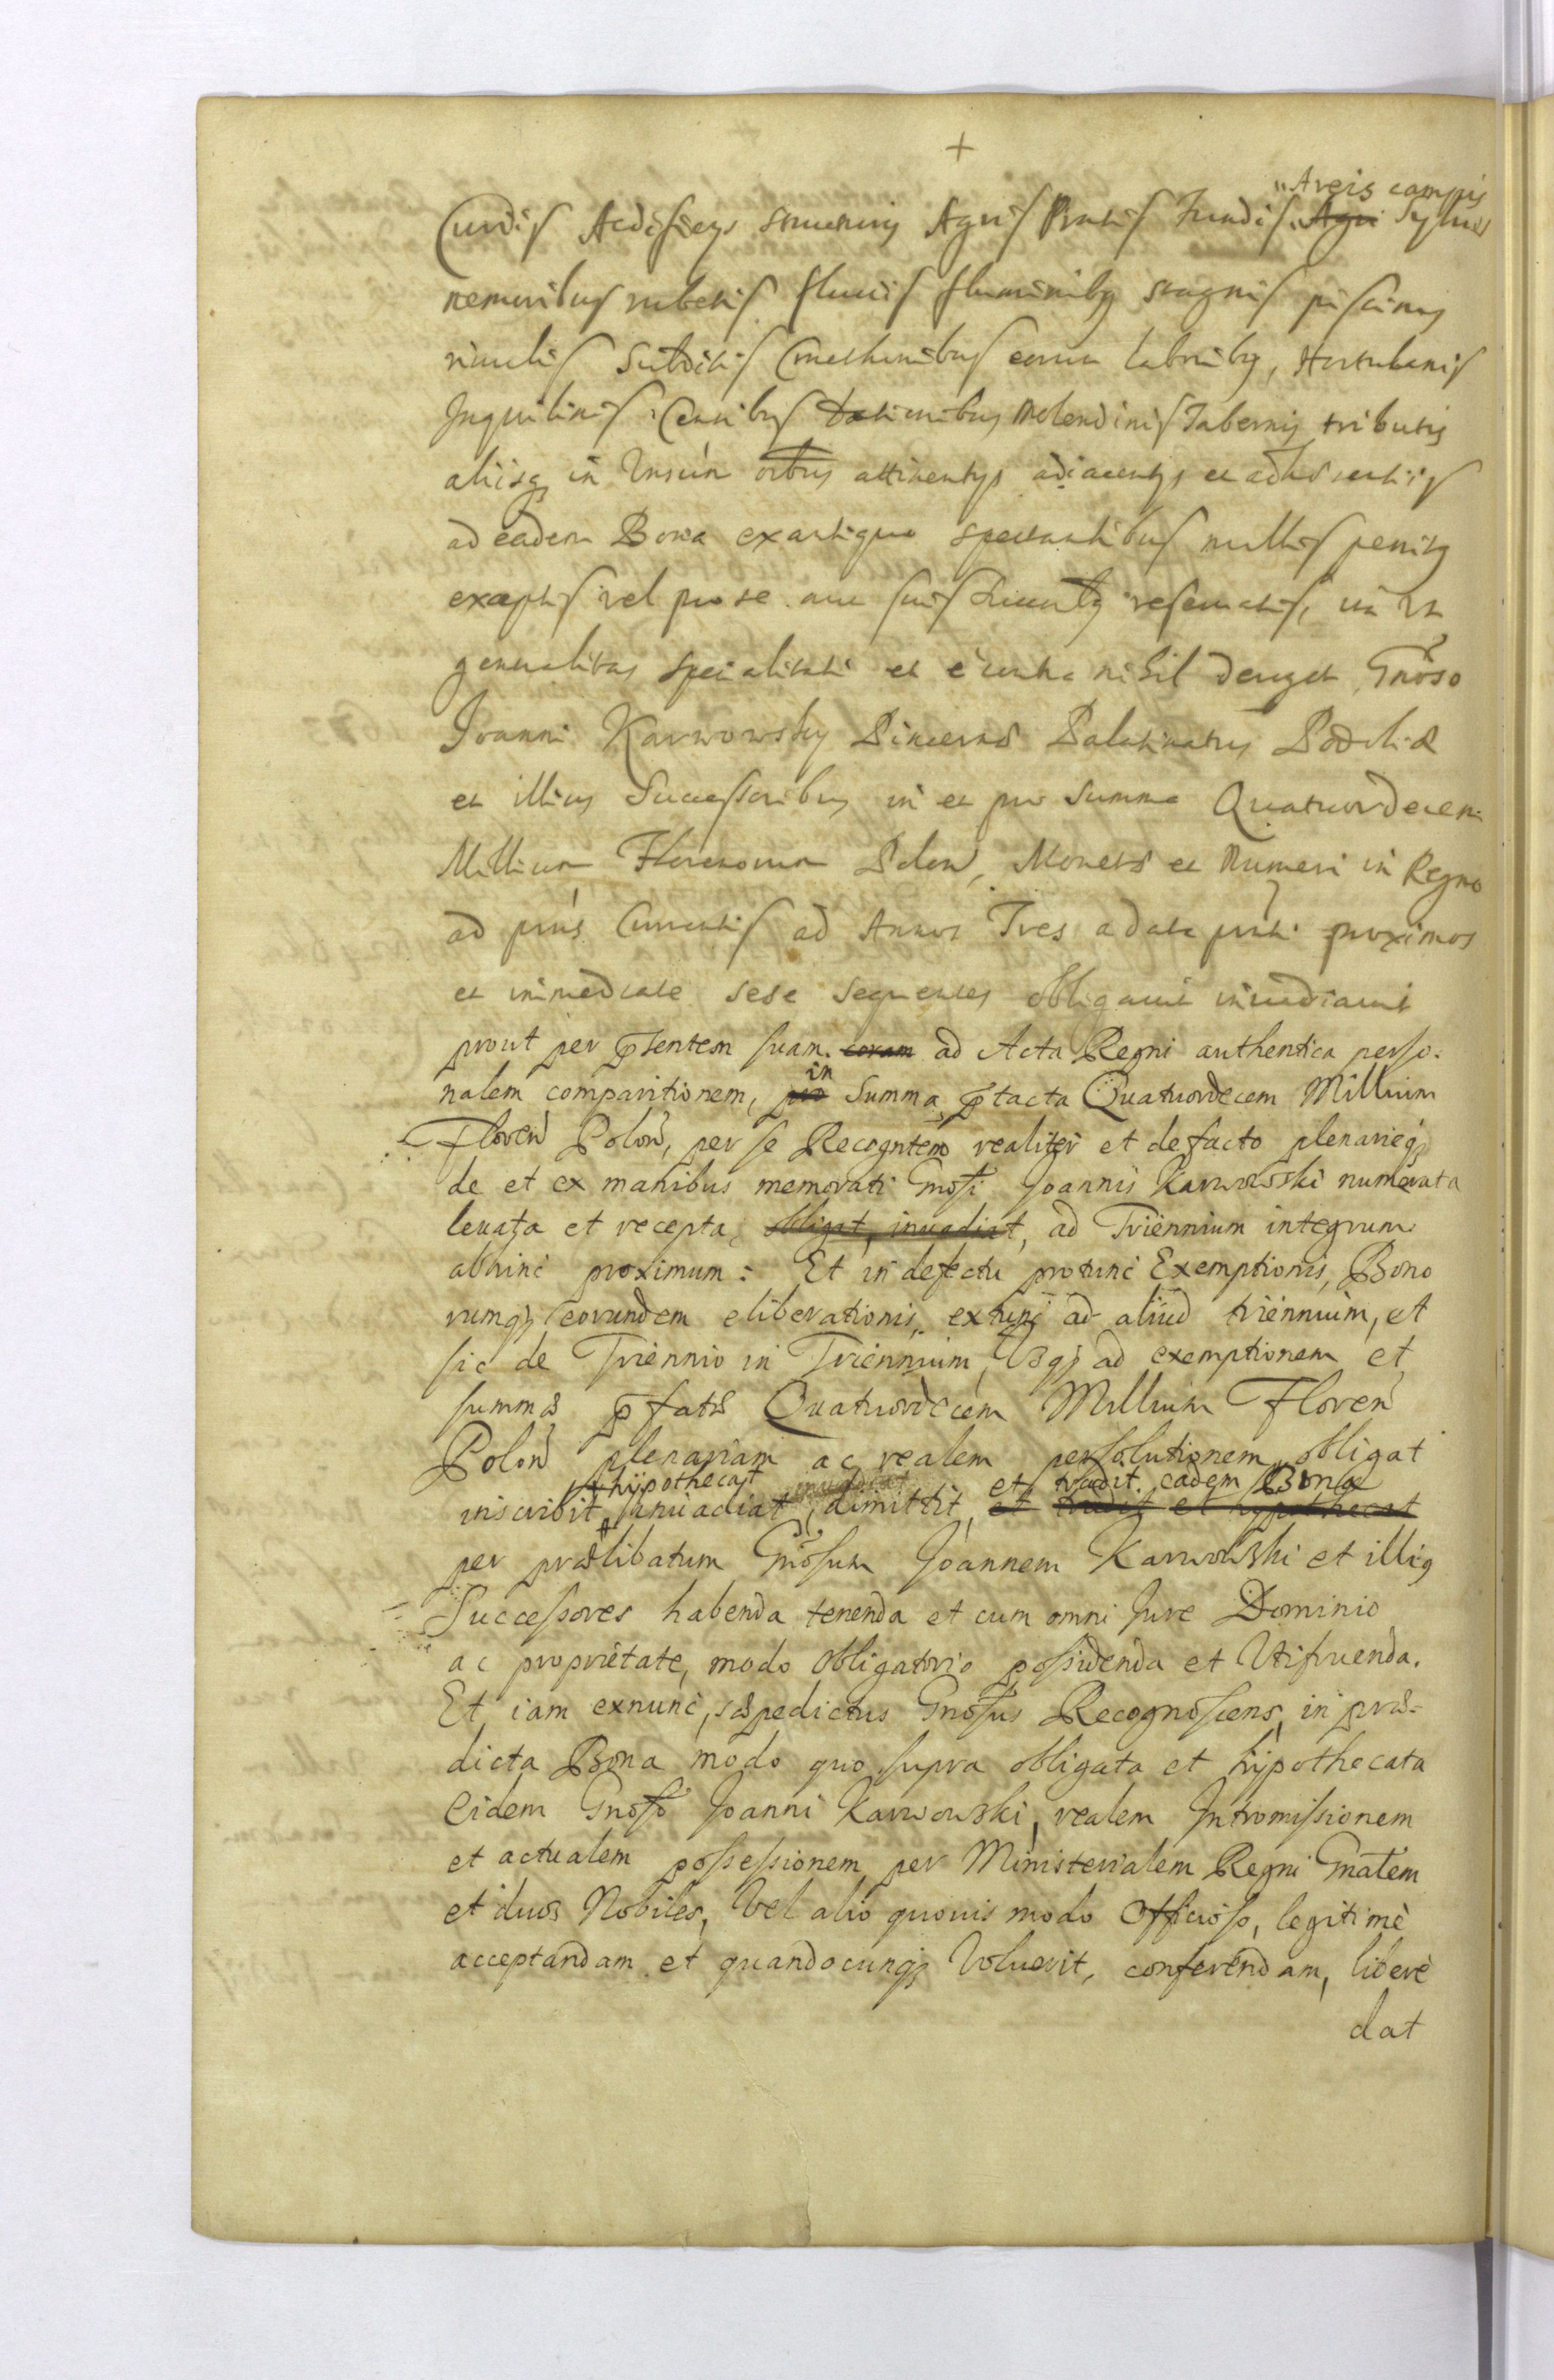 +
Areis campis
Curÿs Aedificÿs structuris Agris Pratis fundis Agri Sylvis
nemoribus rubetis fluviis fluminibq stagnis piscinis
rivulis Subditis Cmethonibus eorum laboribq, Hortulanis
Inquilinis Censibus Dationibus Molendinis Tabernis tributis
aliisq in Universum oibus attinentÿs adiacentÿs et adhaerentiis
ad eadem Bona exantiquo spectantibus nullis penitq
exceptis vel pro se aut suis Succrıbq reservatis, ita ut
generalitas specialitati et è contra nihil deroget, Gnoso
Joanni Karwowsky Pincernæ Palatinatus Podolıæ
et illius Successoribus in et pro Summa Quatuordecem
Millium Florenorum Polon, Monetæ et Numeri in Regno
ad pnús Currentis ad Annos Tres a data pnti proximos
et immediate sese sequentes obligavit invadiavit
prout per pśentem suam coram ad Acta Regni authentica perso-
nalem comparitionem, pro in Summa ptacta Quatuordecem Millium
Floreń Poloń, per se Recogntem realiter et defacto plenarieq
de et ex manibus memorati Gnosi Joannis Karwowski numerata
levata et recepta, obligat, invadiat, ad Triennium integrum
abhinc proximum: Et in defectu protunc Exemptionis, Bono
rumq eorundem eliberationis, extunc ad aliud triennium, et
sic de Triennio in Triennium, Usq ad exemptionem et
summæ pfatæ Quatuordecem Millium Floreń
Poloń plenariam ac realem persolutionem obligat
hypothecat invadiat et tradit eadem Bona
inscribit invadiat, dimittit, et tradit et hypothecat
per prælibatum Gnosum Joannem Karwowski et illiq
Successores habenda tenenda et cum omni Jure Dominio
ac proprietate, modo obligatorio possidenda et Utifruenda.
Et iam exnunc, sæpedictus Gnosus Recognoscens, in præ-
dicta Bona modo quo supra obligata et hypothecata
Eidem Gnoso Joanni Karwowski, realem Intromissionem
et actualem possessionem per Ministerialem Regni Gnalem
et duos Nobiles, Vel alio quovis modo Officioso, legitimè
acceptandam et quandocunq Voluerit, conferendam, liberè
dat